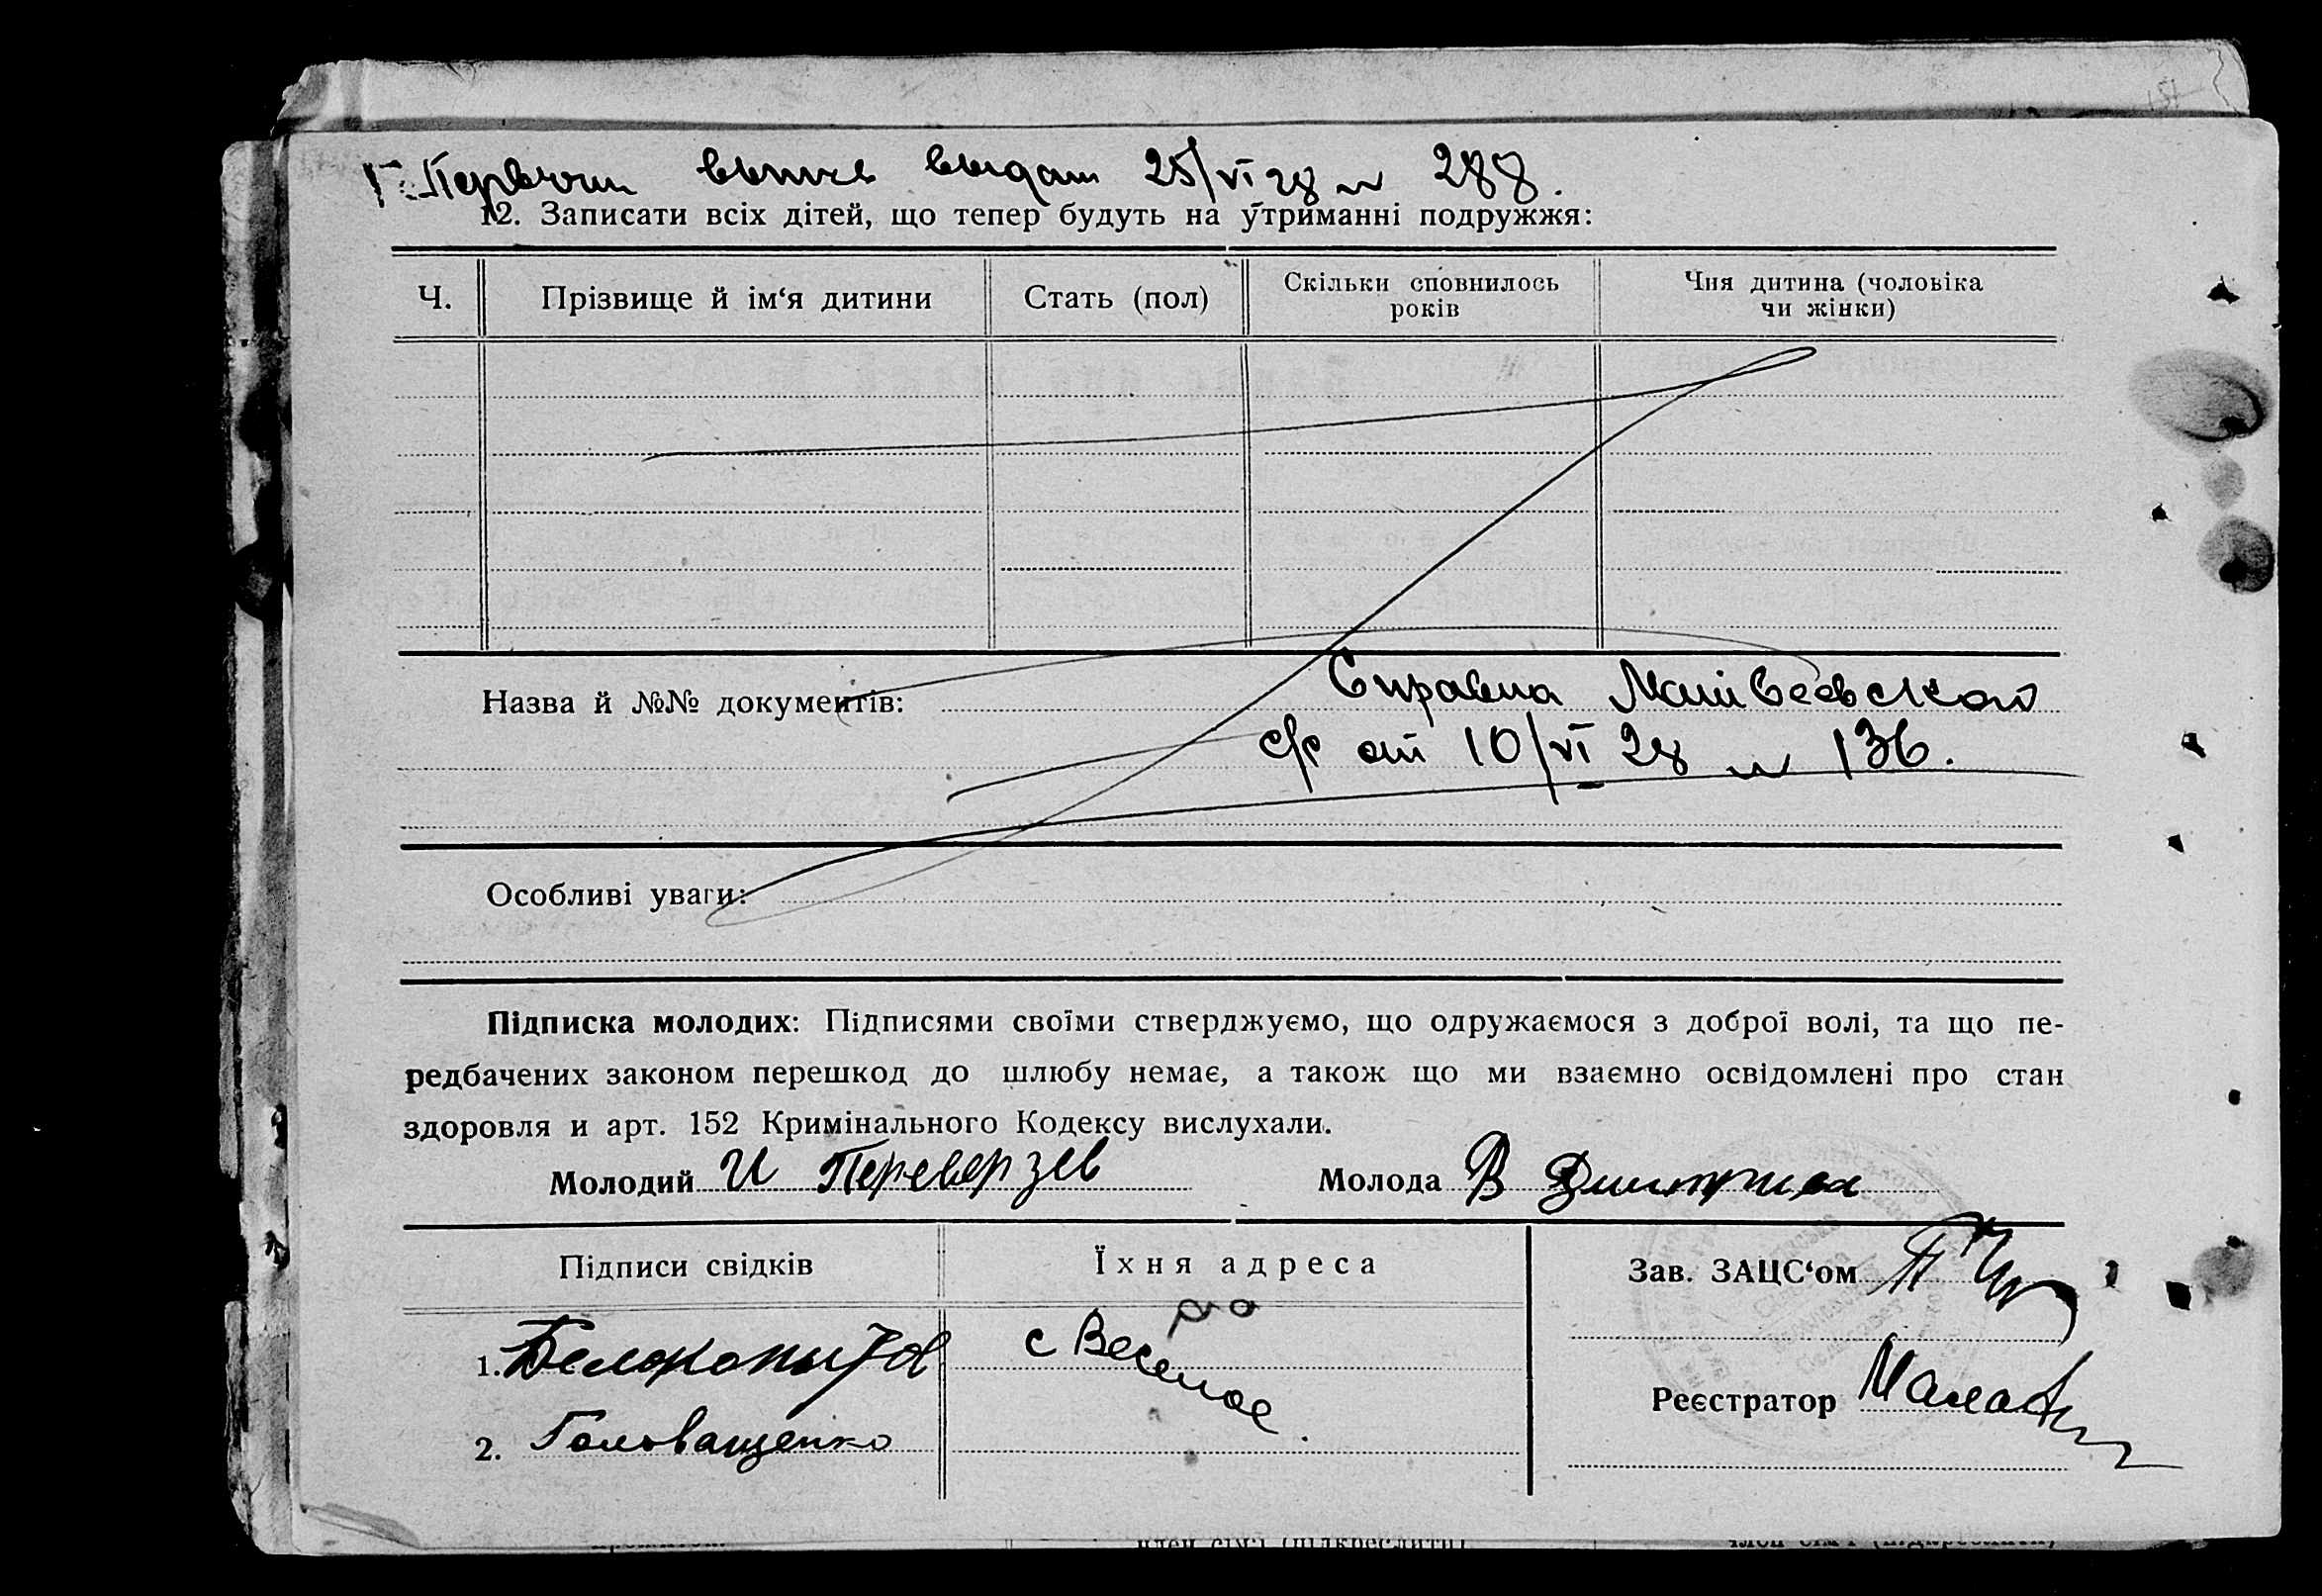 выдан 25/VI 28 № 288.
12. Записати всіх дітей, що тепер будуть на утриманні подружжя:
Ч. Прізвище й ім‘я дитини Стать (пол) Скільки сповнилось років Чия дитина (чоловіка чи жінки)
Назва й №№ документів: Справка Матвеевской
с/с от 10/VI 28 № 136.
Особливі уваги:
Підписка молодих: Підписями своїми стверджуємо, що одружаємося з доброї волі, та що пе-
редбачених законом перешкод до шлюбу немає, а також що ми взаємно освідомлені про стан
здоровля и арт. 152 Кримінального Кодексу вислухали.
Молодий И Переверзев Молода В
Підписи свідків Їхня адреса Зав. ЗАЦС‘ом
1. Белокопытов с Веселое
Реєстратор
2. Головащенко